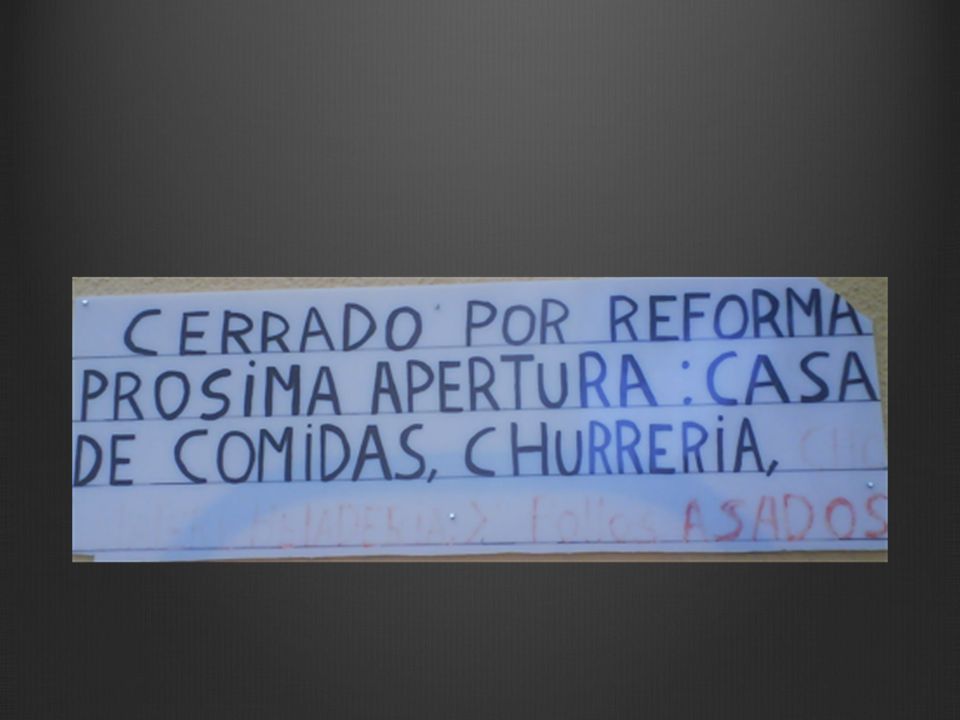 CERRADO POR REFORMA
PROSiMA APERTURA : CASA
DE COMiDAS, CHURRERiA,
Pollos ASADOS